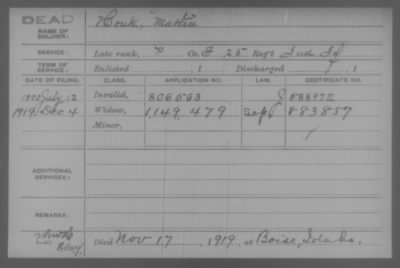 DEAD
NAME OF SOLDIER: Houk, Martin
SERVICE: Late rank, P Co. E, 25 Reg't Ind Inf
TERM OF SERVICE: Enlisted , 1 Discharged , 1
DATE OF FILING. CLASS. APPLICATION NO. LAW. CERTIFICATE NO.
1890 July 12 Invalid, 806563
1919 Dec 4 Widow, 1,149,479 883857
Minor,
ADDITIONAL SERVICES:
REMARKS:
Died Nov 17, 1919, at Boise, Idaho.